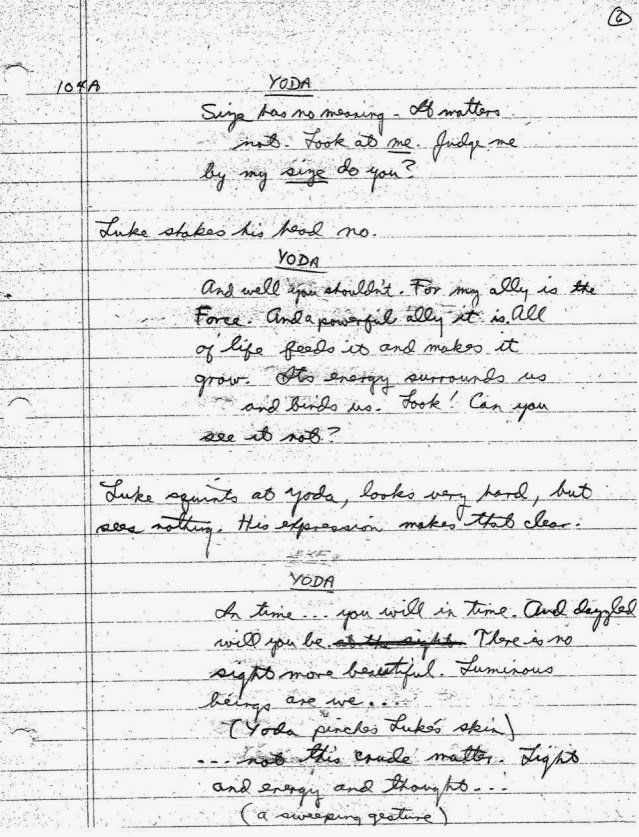 6
104A YODA
Size has no meaning - It matters
not. Look at me. Judge me
by my size do you?
Luke shakes his head no.
YODA
And well you shouldn't. For my ally is the
Force. And a powerful ally it is. All
of life feeds it and makes it
grow. Its energy surrounds us
and binds us. Look! Can you
see it not?
Luke squints at Yoda, looks very hard, but
sees nothing. His expression makes that clear.
YODA
In time... you will in time. And dazzled
will you be at the sight. There is no
sight more beautiful. Luminous
beings are we....
(Yoda pinches Luke's skin)
... not this crude matter. Light
and energy and thought...
(a sweeping gesture)